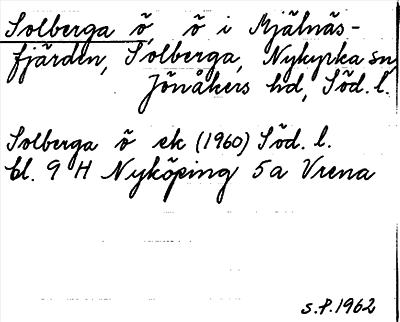 Solberga ö, ö i Mjälnäs-
fjärden, Solberga, Nykyrka sn,
Jönåkers hd, Söd. l.
Solberga ö ek (1960) Söd. l.
bl. 9 H Nyköping 5a Vrena
S.P. 1962